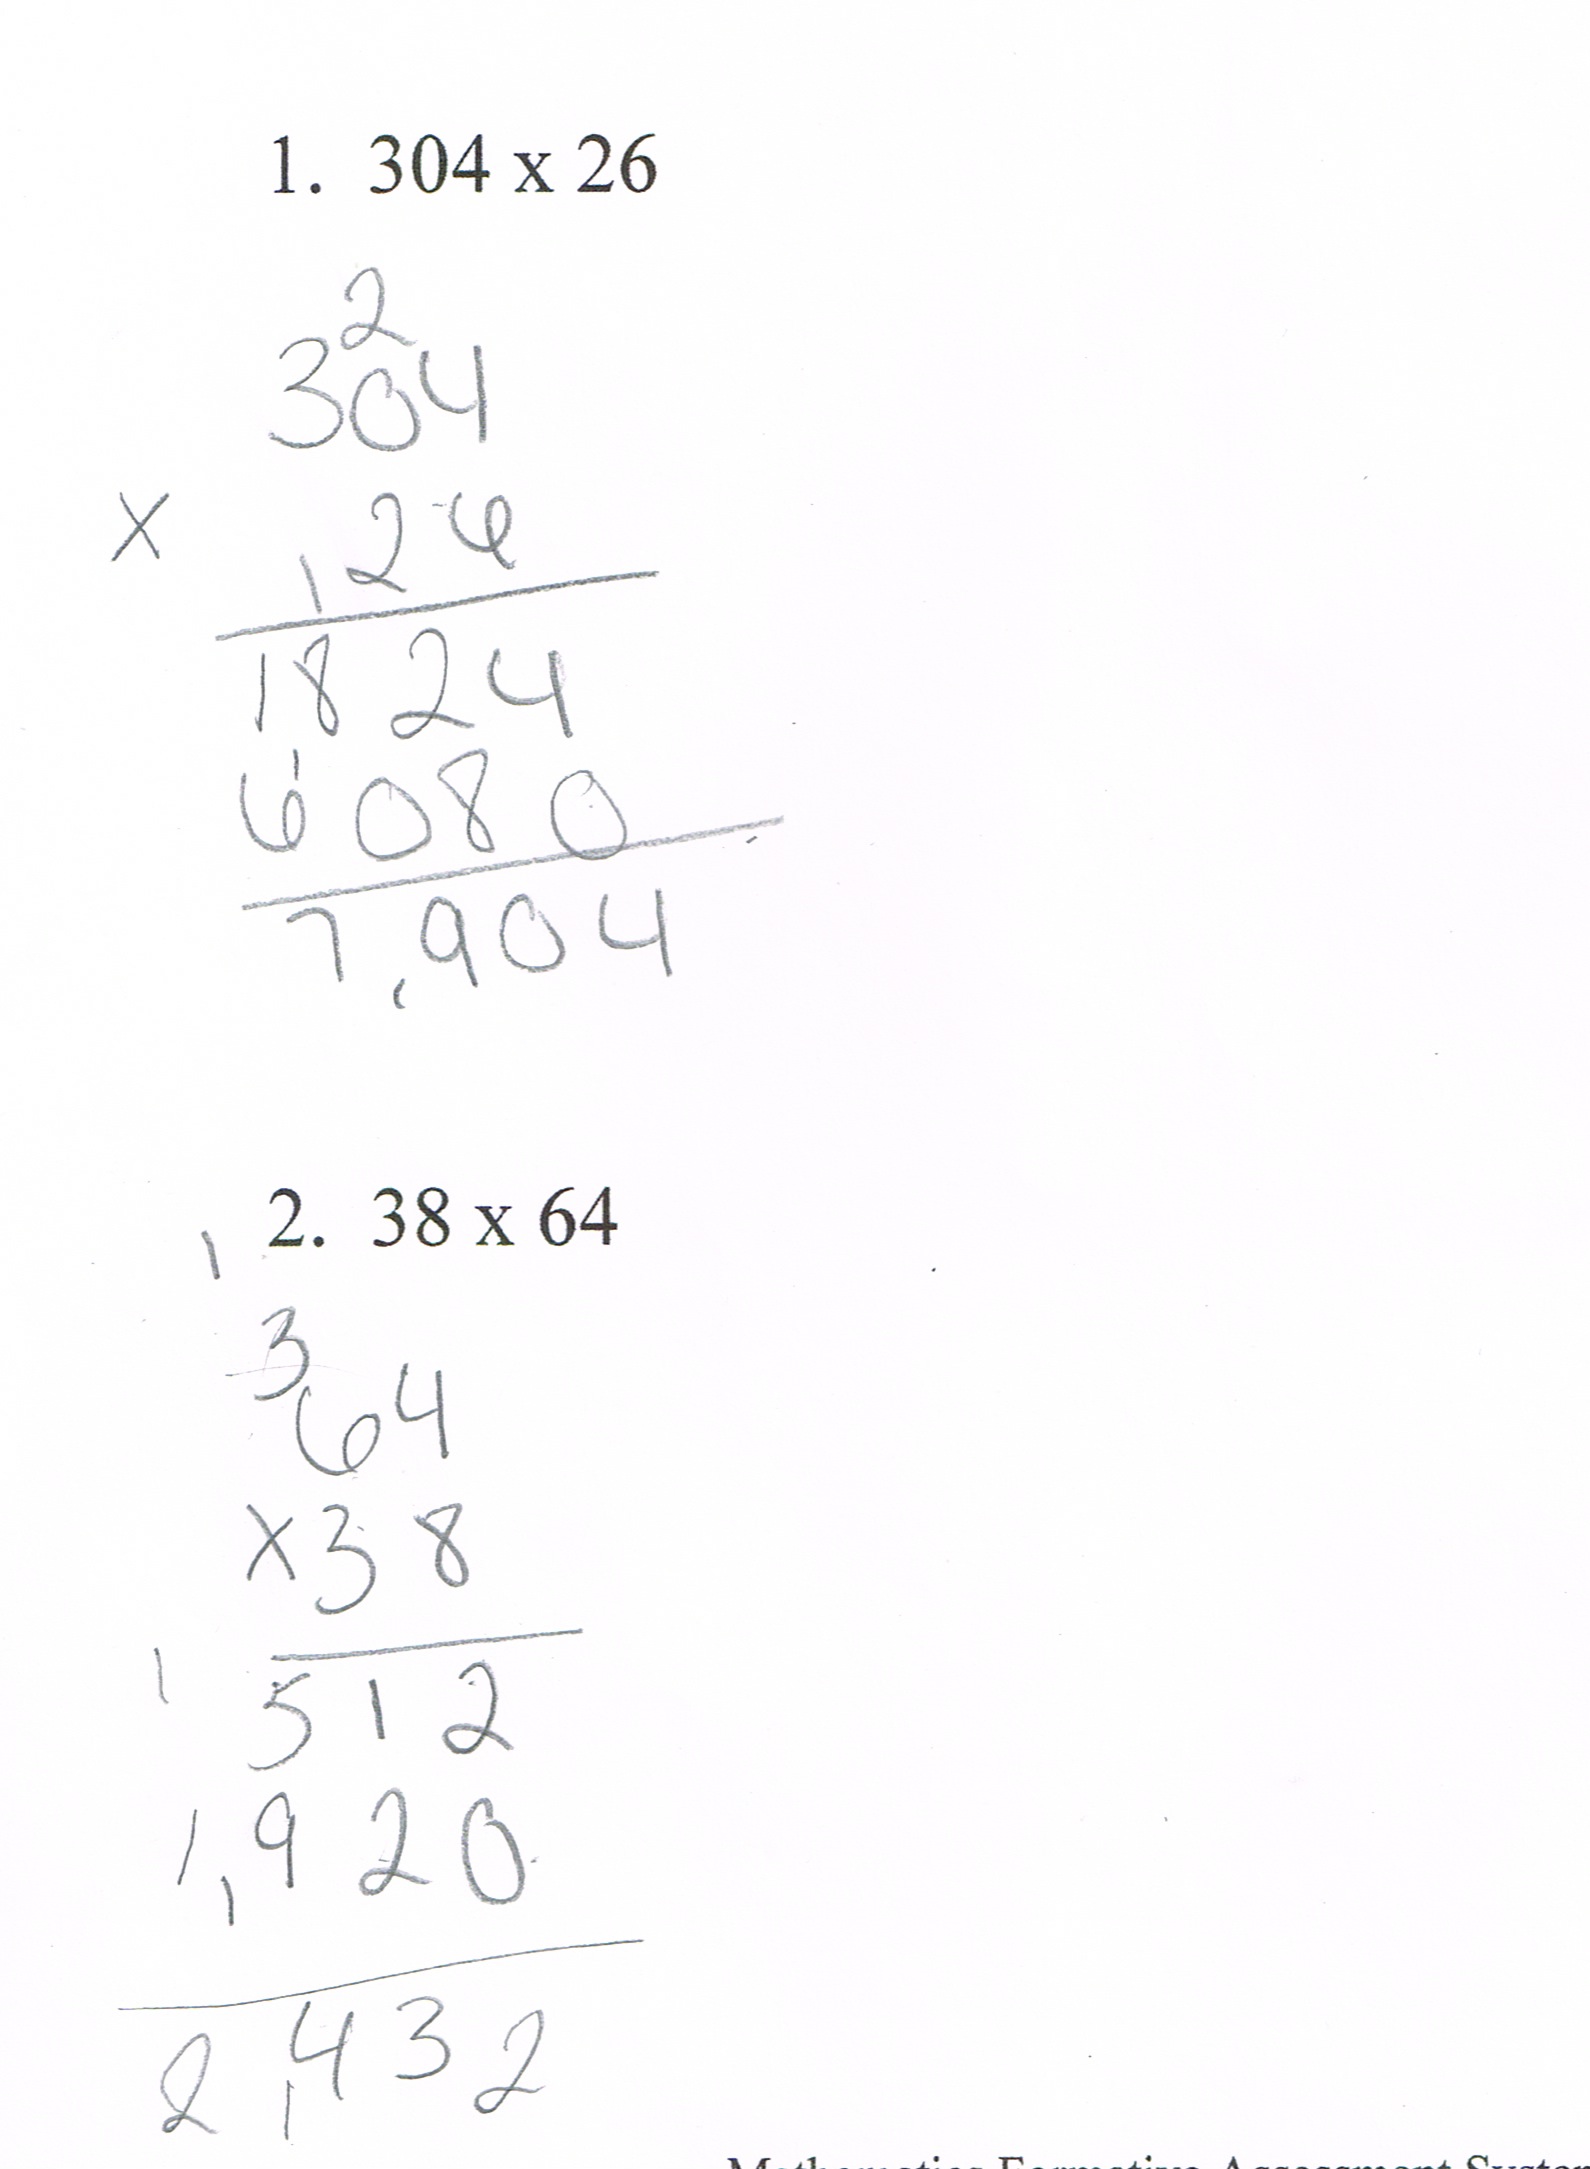 1. 304 x 26
2
304
x 26
1
1824
1
6080
7,904
2. 38 x 64
1
3
64
x38
1
512
1,920
2,432
Mathematics Formative Assessment System